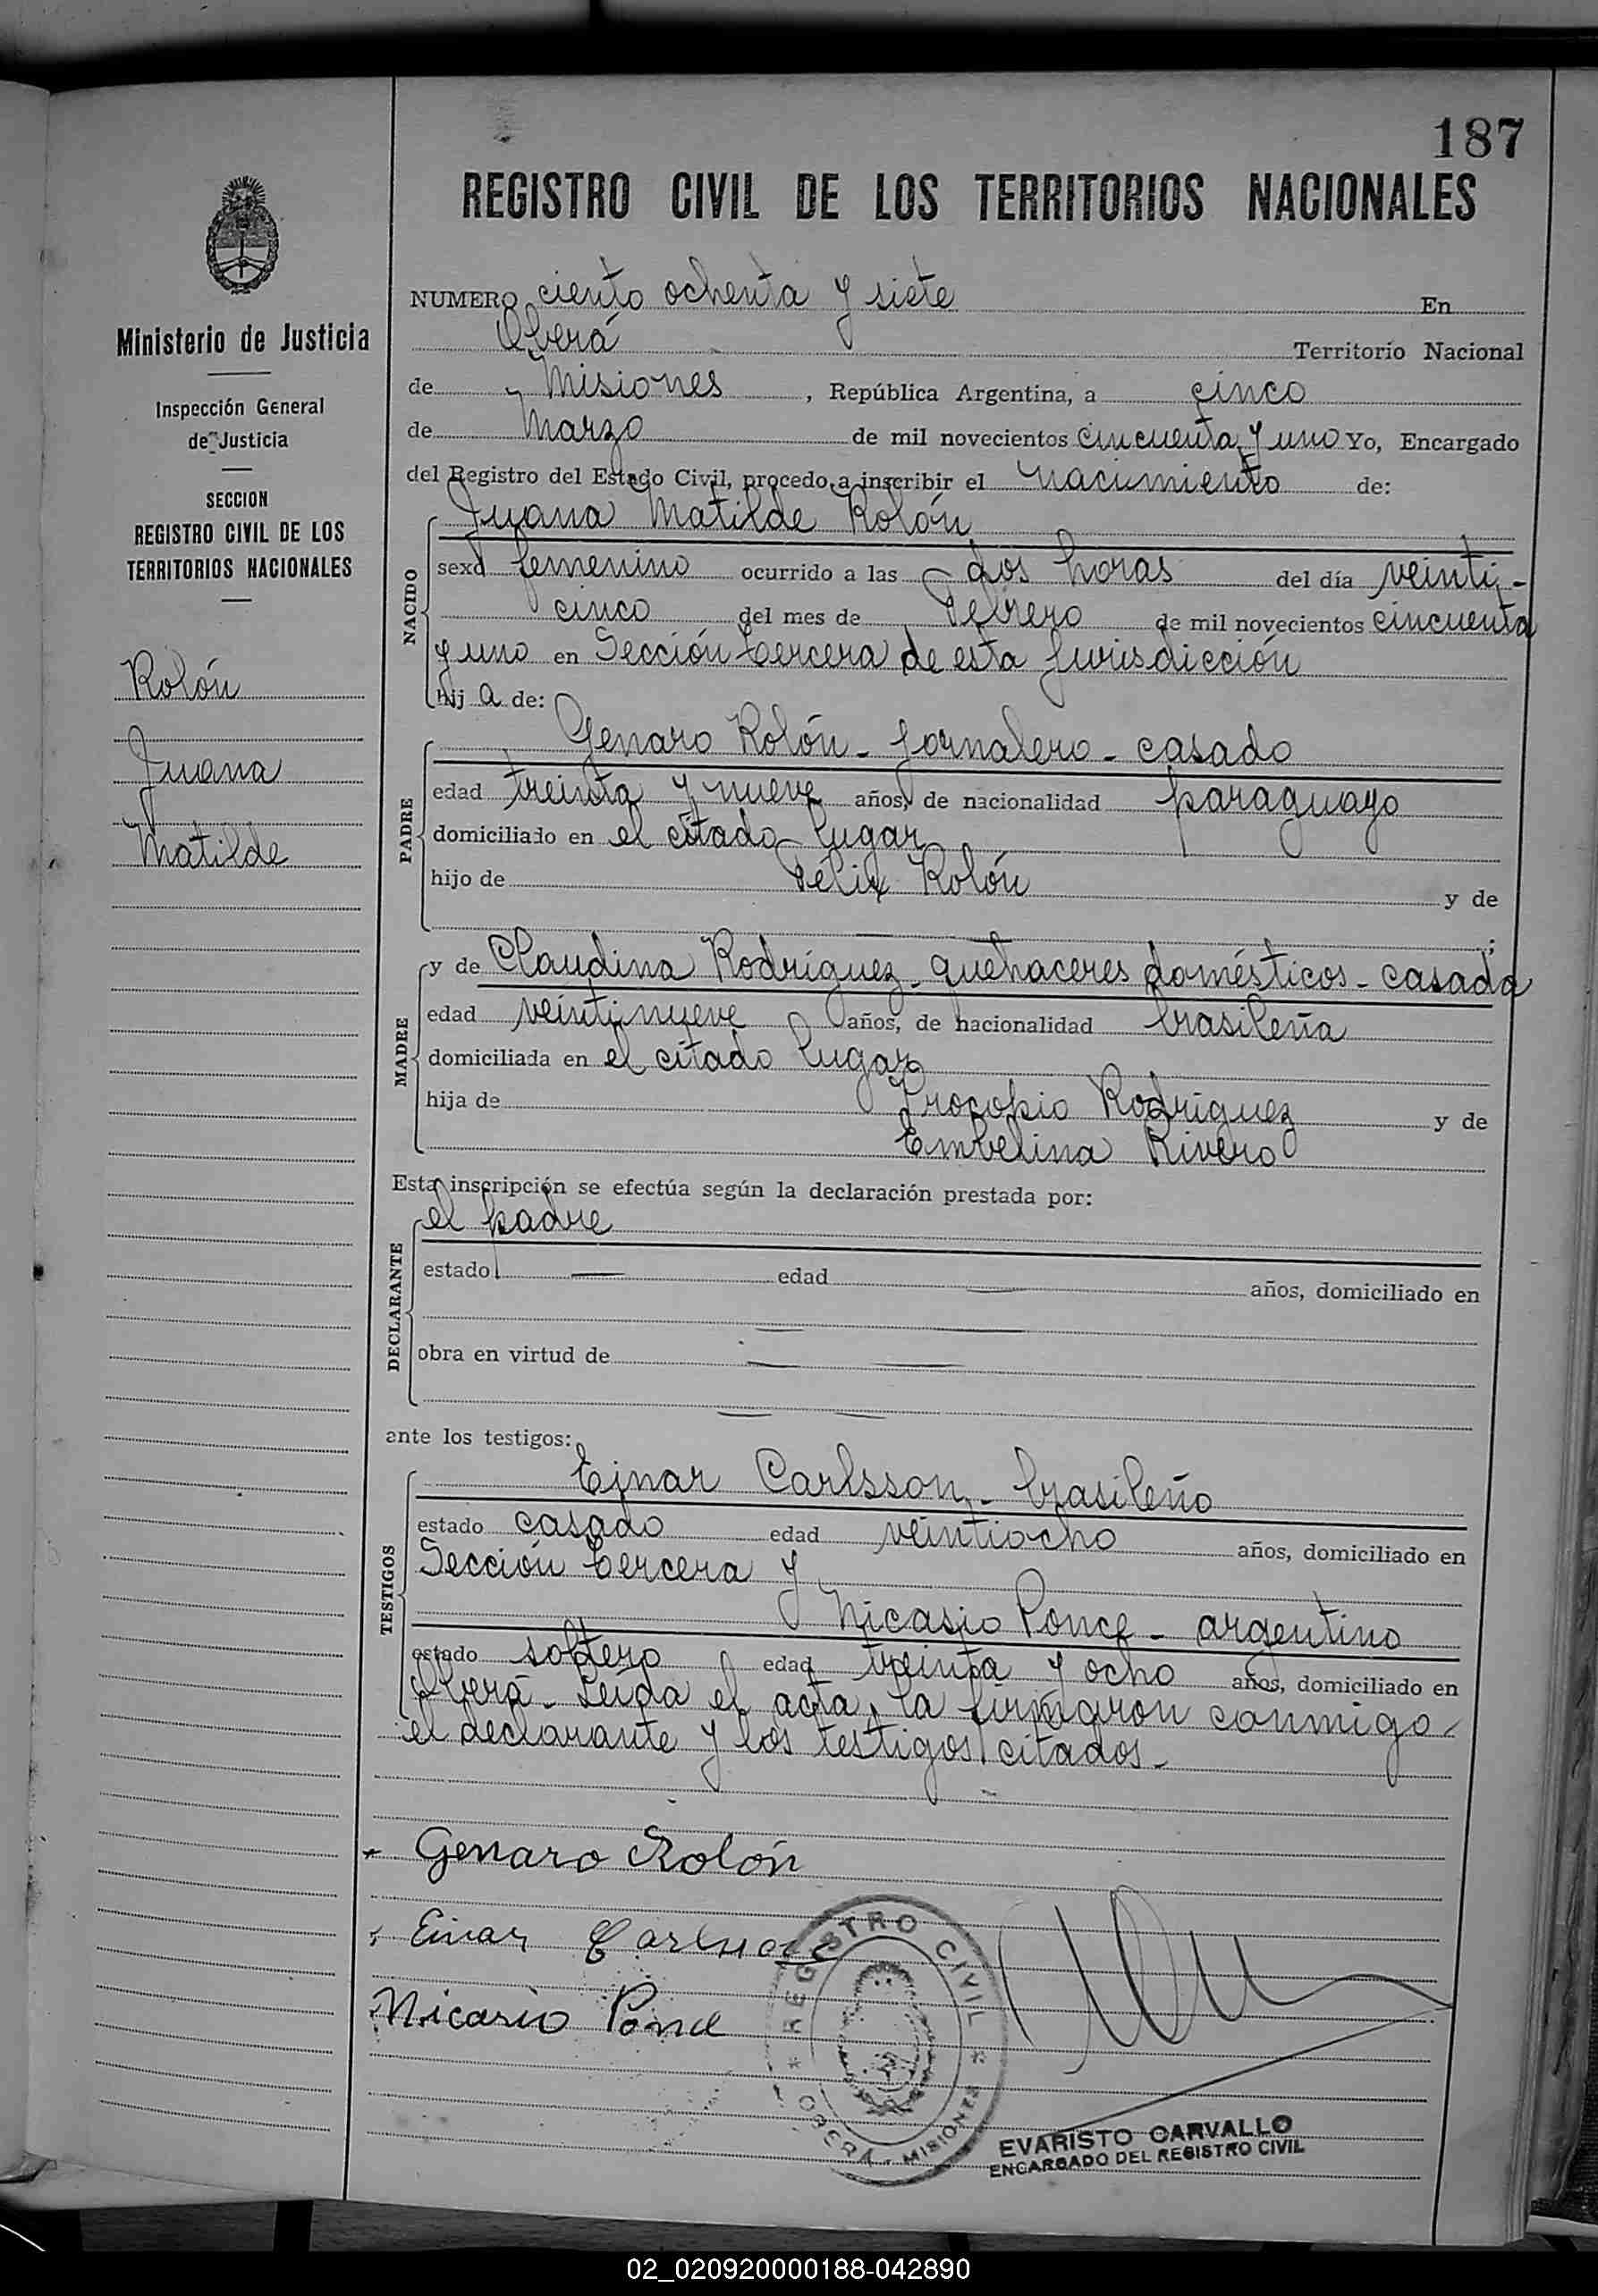 187
REGISTRO CIVIL DE LOS TERRITORIOS NACIONALES
Ministerio de Justicia
Inspección General
de Justicia
SECCION
REGISTRO CIVIL DE LOS
TERRITORIOS NACIONALES
Rolón
Juana
Matilde
NUMERO ciento ochenta y siete En
Oberá Territorio Nacional
de Misiones, República Argentina, a cinco
de Marzo de mil novecientos cincuenta y uno Yo, Encargado
del Registro del Estado Civil, procedo a inscribir el nacimiento de:
NACIDO
Juana Matilde Rolón
sexo femenino ocurrido a las dos horas del día veinti-
cinco del mes de Febrero de mil novecientos cincuenta
y uno en Sección tercera de esta jurisdicción
hij a de:
PADRE
Genaro Rolón - jornalero - casado
edad treinta y nueve años, de nacionalidad paraguayo
domiciliado en el citado lugar
hijo de Félix Rolón y de
— ;
MADRE
y de Claudina Rodríguez - quehaceres domésticos - casada
edad veintinueve años, de nacionalidad brasileña
domiciliada en el citado lugar
hija de Procopio Rodríguez y de
Embelina Rivero
Esta inscripción se efectúa según la declaración prestada por:
DECLARANTE
el padre
estado — edad — años, domiciliado en
— —
obra en virtud de — —
— —
ante los testigos:
TESTIGOS
Einar Carlsson - brasileño
estado casado edad veintiocho años, domiciliado en
Sección tercera y
Nicasio Ponce - argentino
estado soltero edad treinta y ocho años, domiciliado en
Oberá - Leída el acta, la firmaron conmigo
el declarante y los testigos citados -
Genaro Rolón
Einar Carlsson
Nicasio Ponce
REGISTRO CIVIL
OBERA - MISIONES
EVARISTO CARVALLO
ENCARGADO DEL REGISTRO CIVIL
02_020920000188-042890